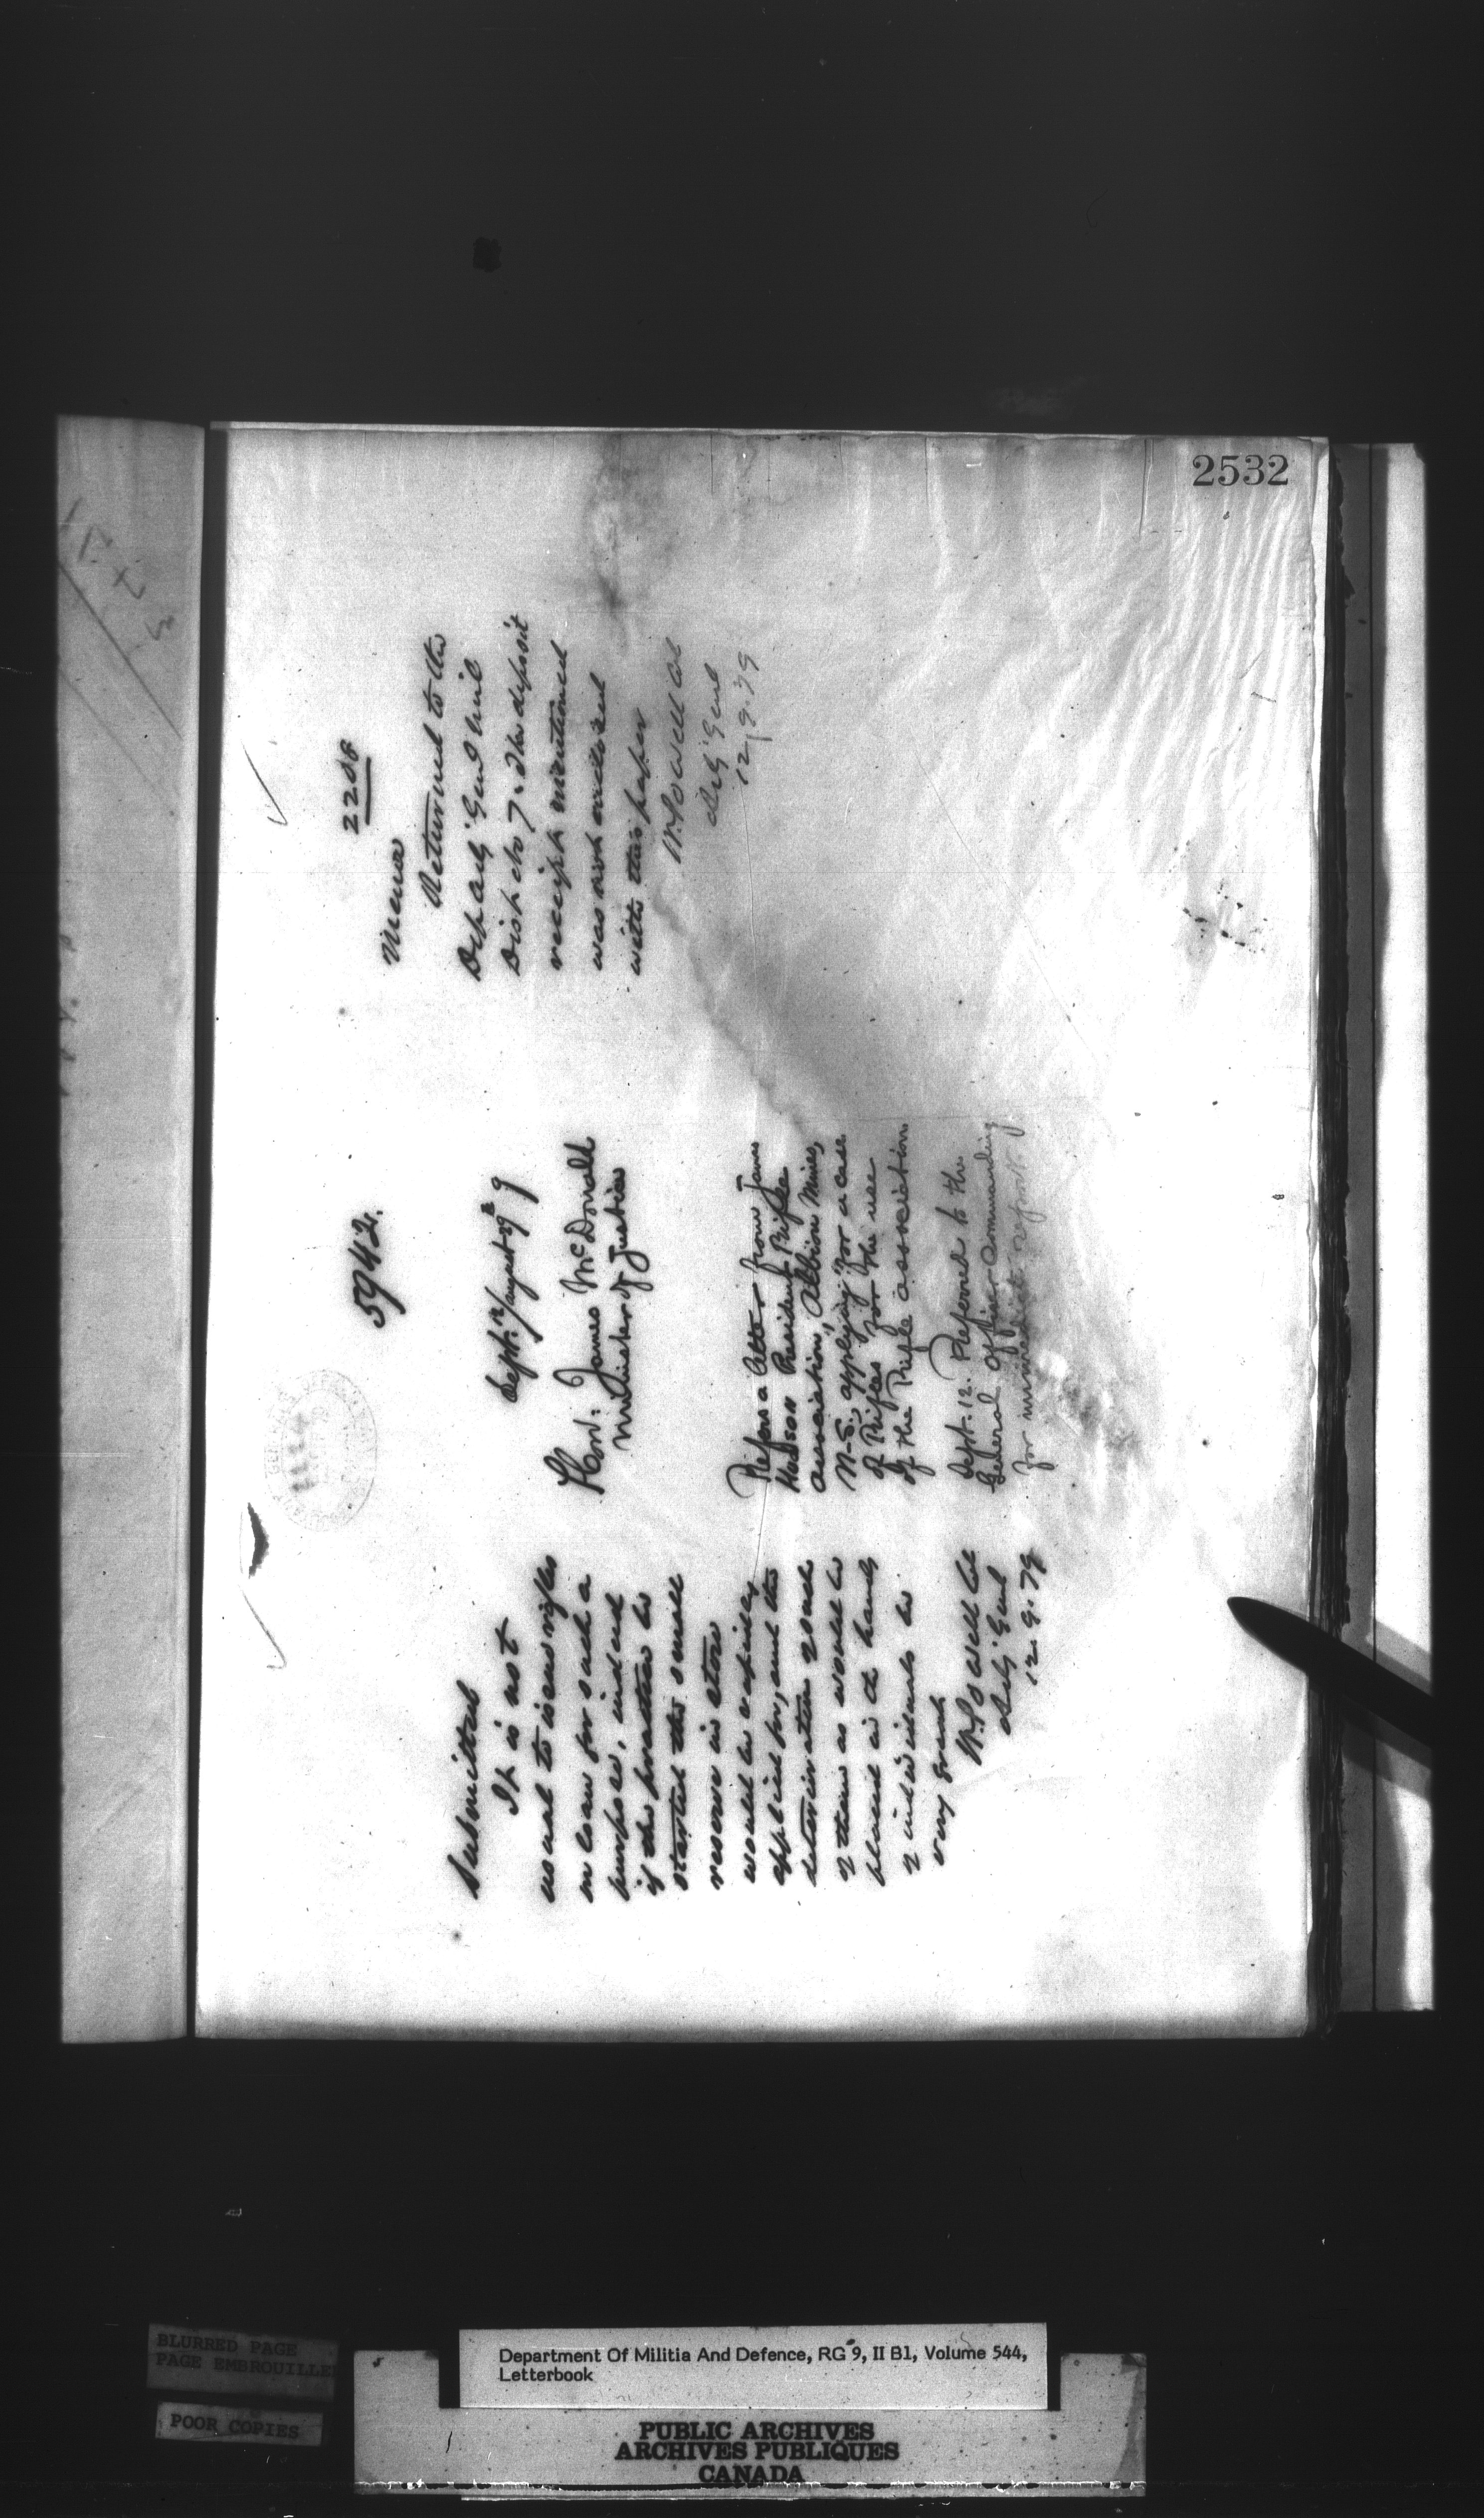 2532
5942.
Sept. 12/August 29th 9
Hon. James McDonald
Minister of Justice
Refers a letter from James
Hudson President "Rifle
association," Albion Mines,
N-S. applying for a case
of Rifles for the use
of the Rifle association.
Sept. 12. Referred to the
General Officer Commanding
for immediate report.
Submitted
It is not
usual to issue rifles
on loan for such a
purpose, indeed
if the practice be
started the small
reserve in store
would be rapidly
applied for, and the
deterioration of such
of them as would be
placed in the hands
of individuals be
very great
W. Powell Col
Adj Genl
12.9.79
2258
Memo
Returned to the
Dep Adj Genl Mil
Dist No 7. The deposit
receipt mentioned
was not enclosed
with this paper
W. Powell Col
Adj Genl
12/9/79
BLURRED PAGE
PAGE EMBROUILLE
POOR COPIES
Department Of Militia And Defence, RG 9, II B1, Volume 544,
Letterbook
PUBLIC ARCHIVES
ARCHIVES PUBLIQUES
CANADA